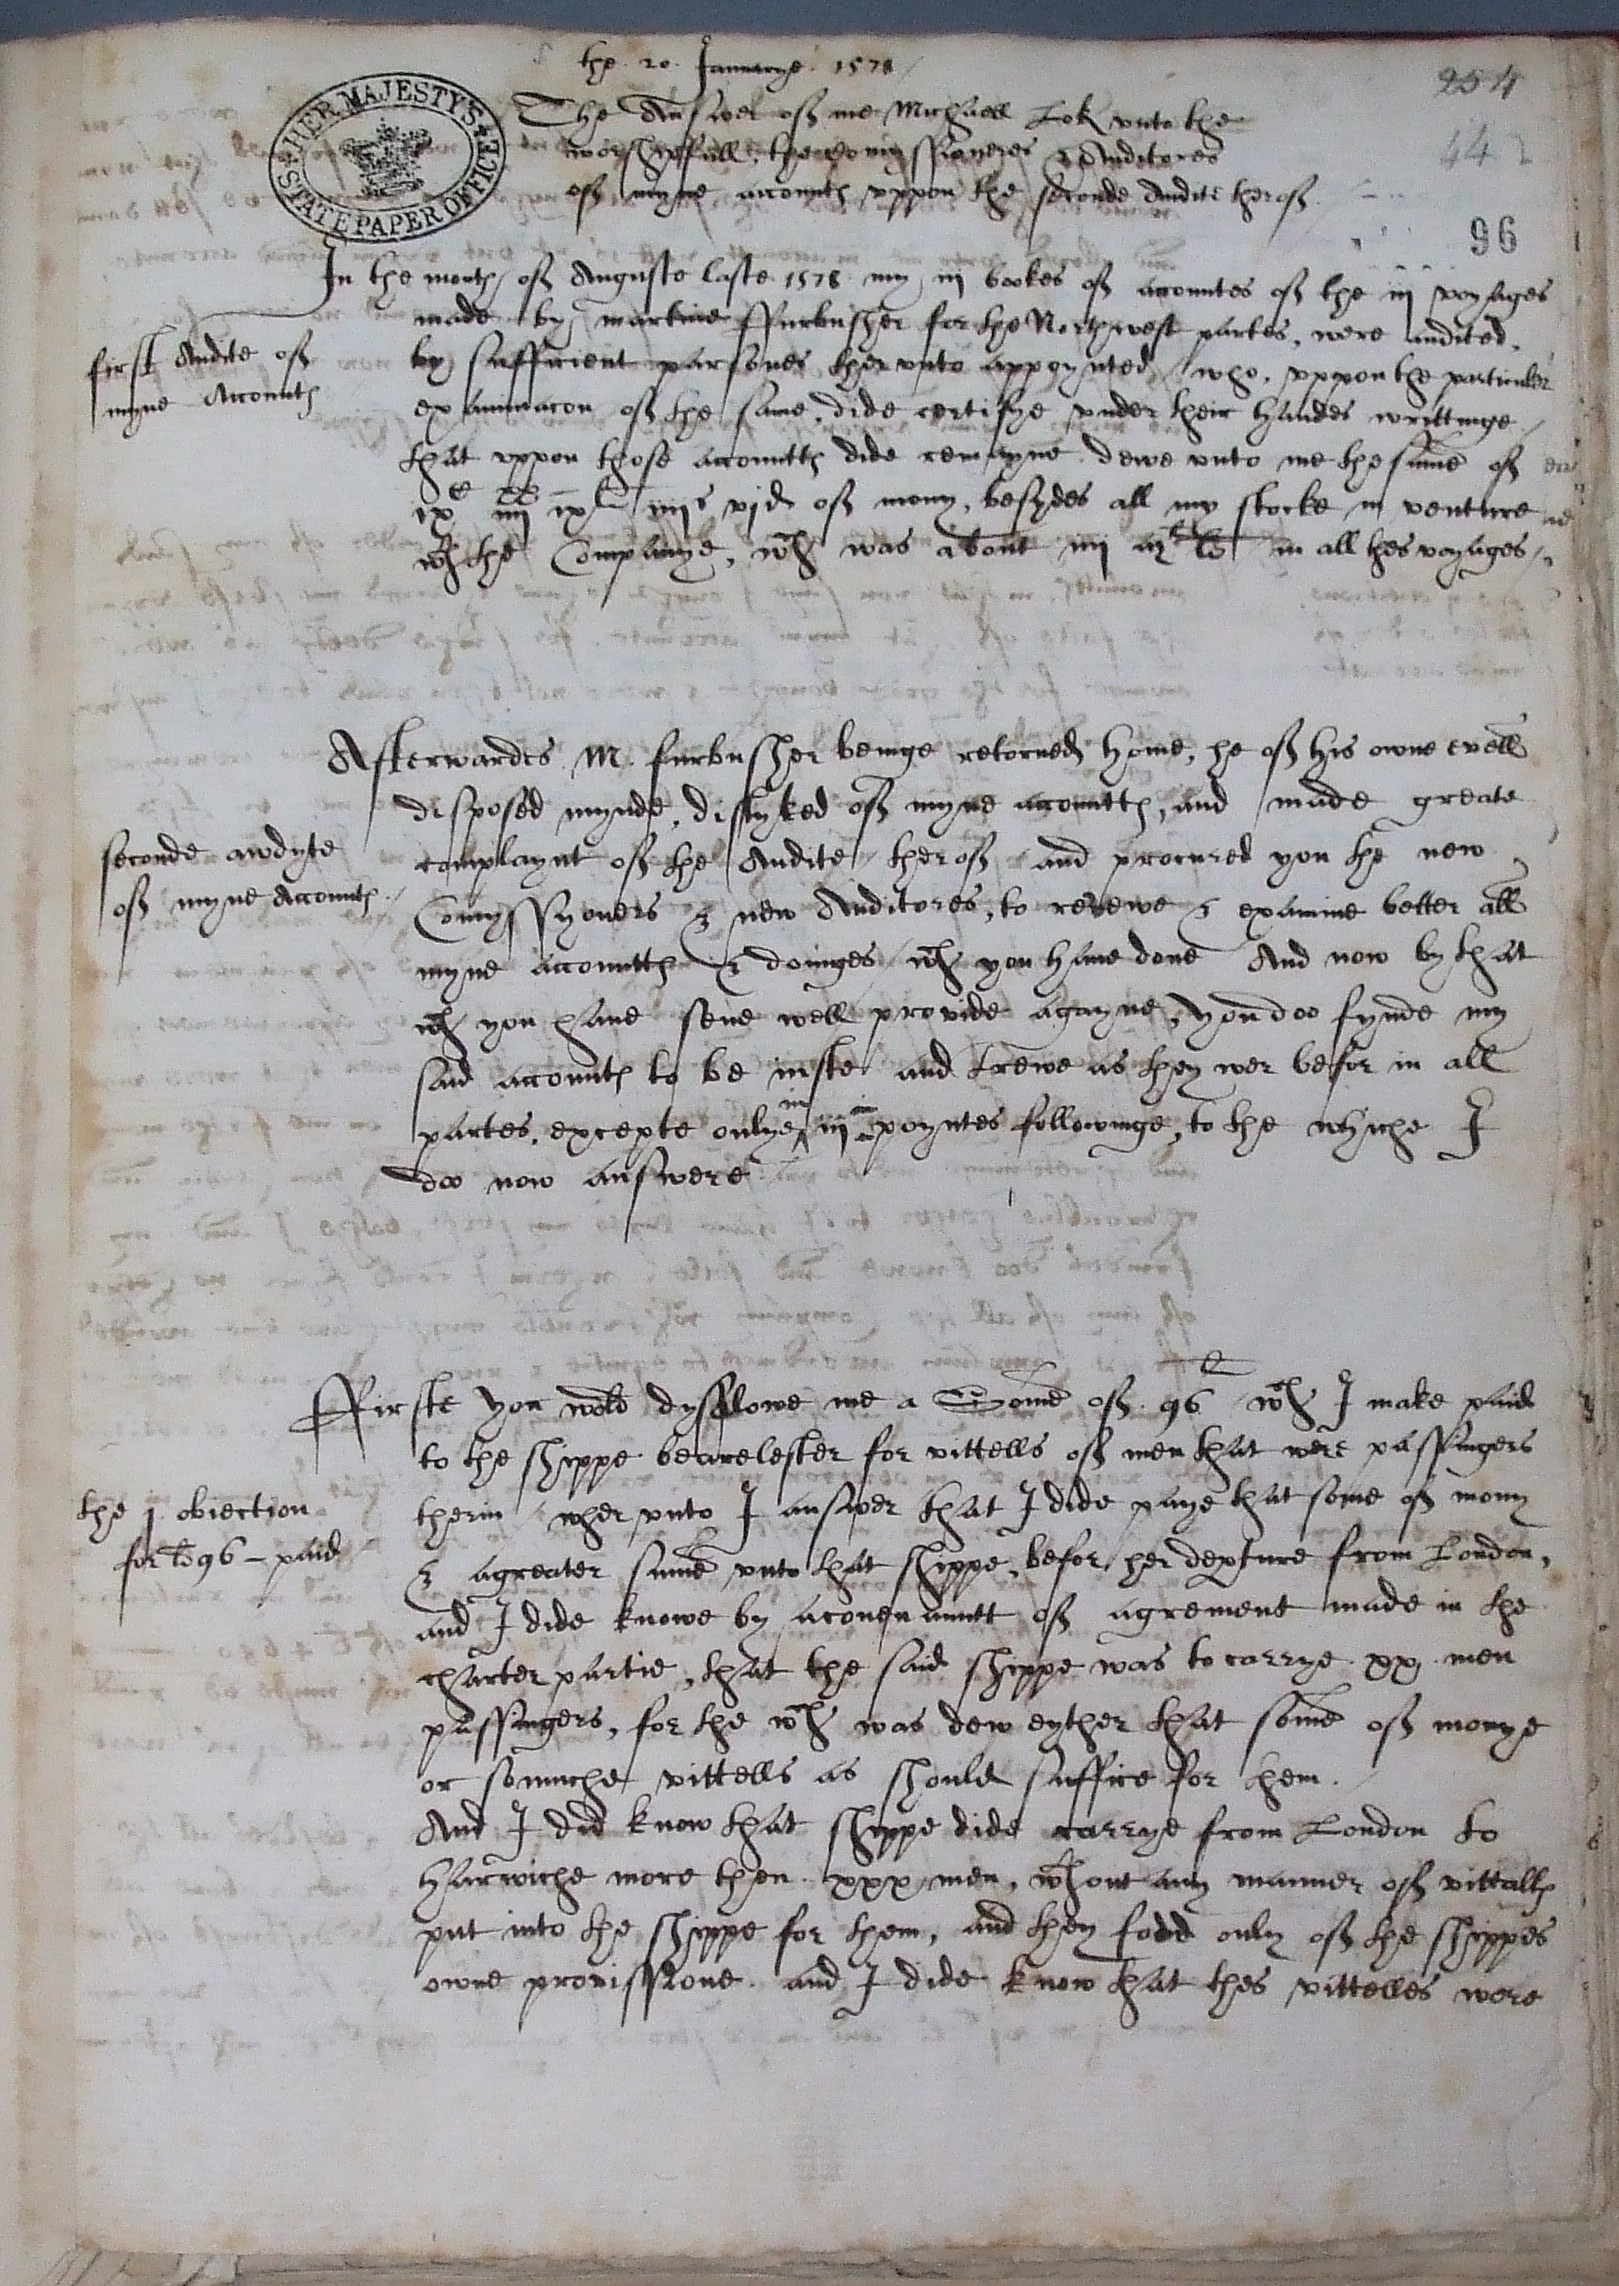 the 20 Januarye 1578
254
The Answer of me Michaell Lok vnto the
worshipfull the Comyssyoneres & Auditores
of myne accountes vppon the seconde Audite therof
44
96
HER MAJESTY'S STATE PAPER OFFICE
In the month of Auguste laste 1578 my iij bookes of accountes of the iij voyages
made by martine ffurbusher for the Northwest partes, were audited,
first Audite of
myne Accountes
by sufficient parsones ther vnto appoynted, who, vppon the particuler
examinacon of the same, dide certifye vnder their handes writtinge
that vppon those accountes dide remayne dewe vnto me the sume of
ixc iiijxx ixli iiijs vjd of mony, besydes all my stocke in venture
wth the Companye, wch was about in all thes voyages
Afterwardes M. furbusher beinge retorned home, he of his owne evell
disposed mynde, dislyked of myne accountes, and made greate
seconde awdyte
of myne Accountes
complaynt of the Audite therof and procured you the new
Comyssyoners & new Auditores, to revewe & examine better all
myne accountes & doinges wch you have done And now by that
wch you have sene well provide agayne, you doo fynde my
said accountes to be iuste and trewe as they wer befor in all
partes, excepte onlye in iij poyntes followinge, to the whiche I
doo now answere
ffirste you wold dysalowe me a Some of £ 96 wch I make paid
to the shippe bearelester for vittells of men that were passingers
the j obiection
for £ 96 – paid
therin wher vnto I answer that I dide paye that some of mony
& agreater sume vnto that shippe, befor her depture from London,
and I dide knowe by a couenauntt of agrement made in the
charter partie, that the said shippe was to carrye xx men
passingers, for the wch was dew eyther that some of monye
or somuche vittells as should suffice for them.
And I did know that shippe dide carrye from London to
Harwiche more then xxx men, wthout any manner of vittalles
put into the shippe for them, and they fedd only of the shippes
owne provissione. and I dide know that thes vittelles were